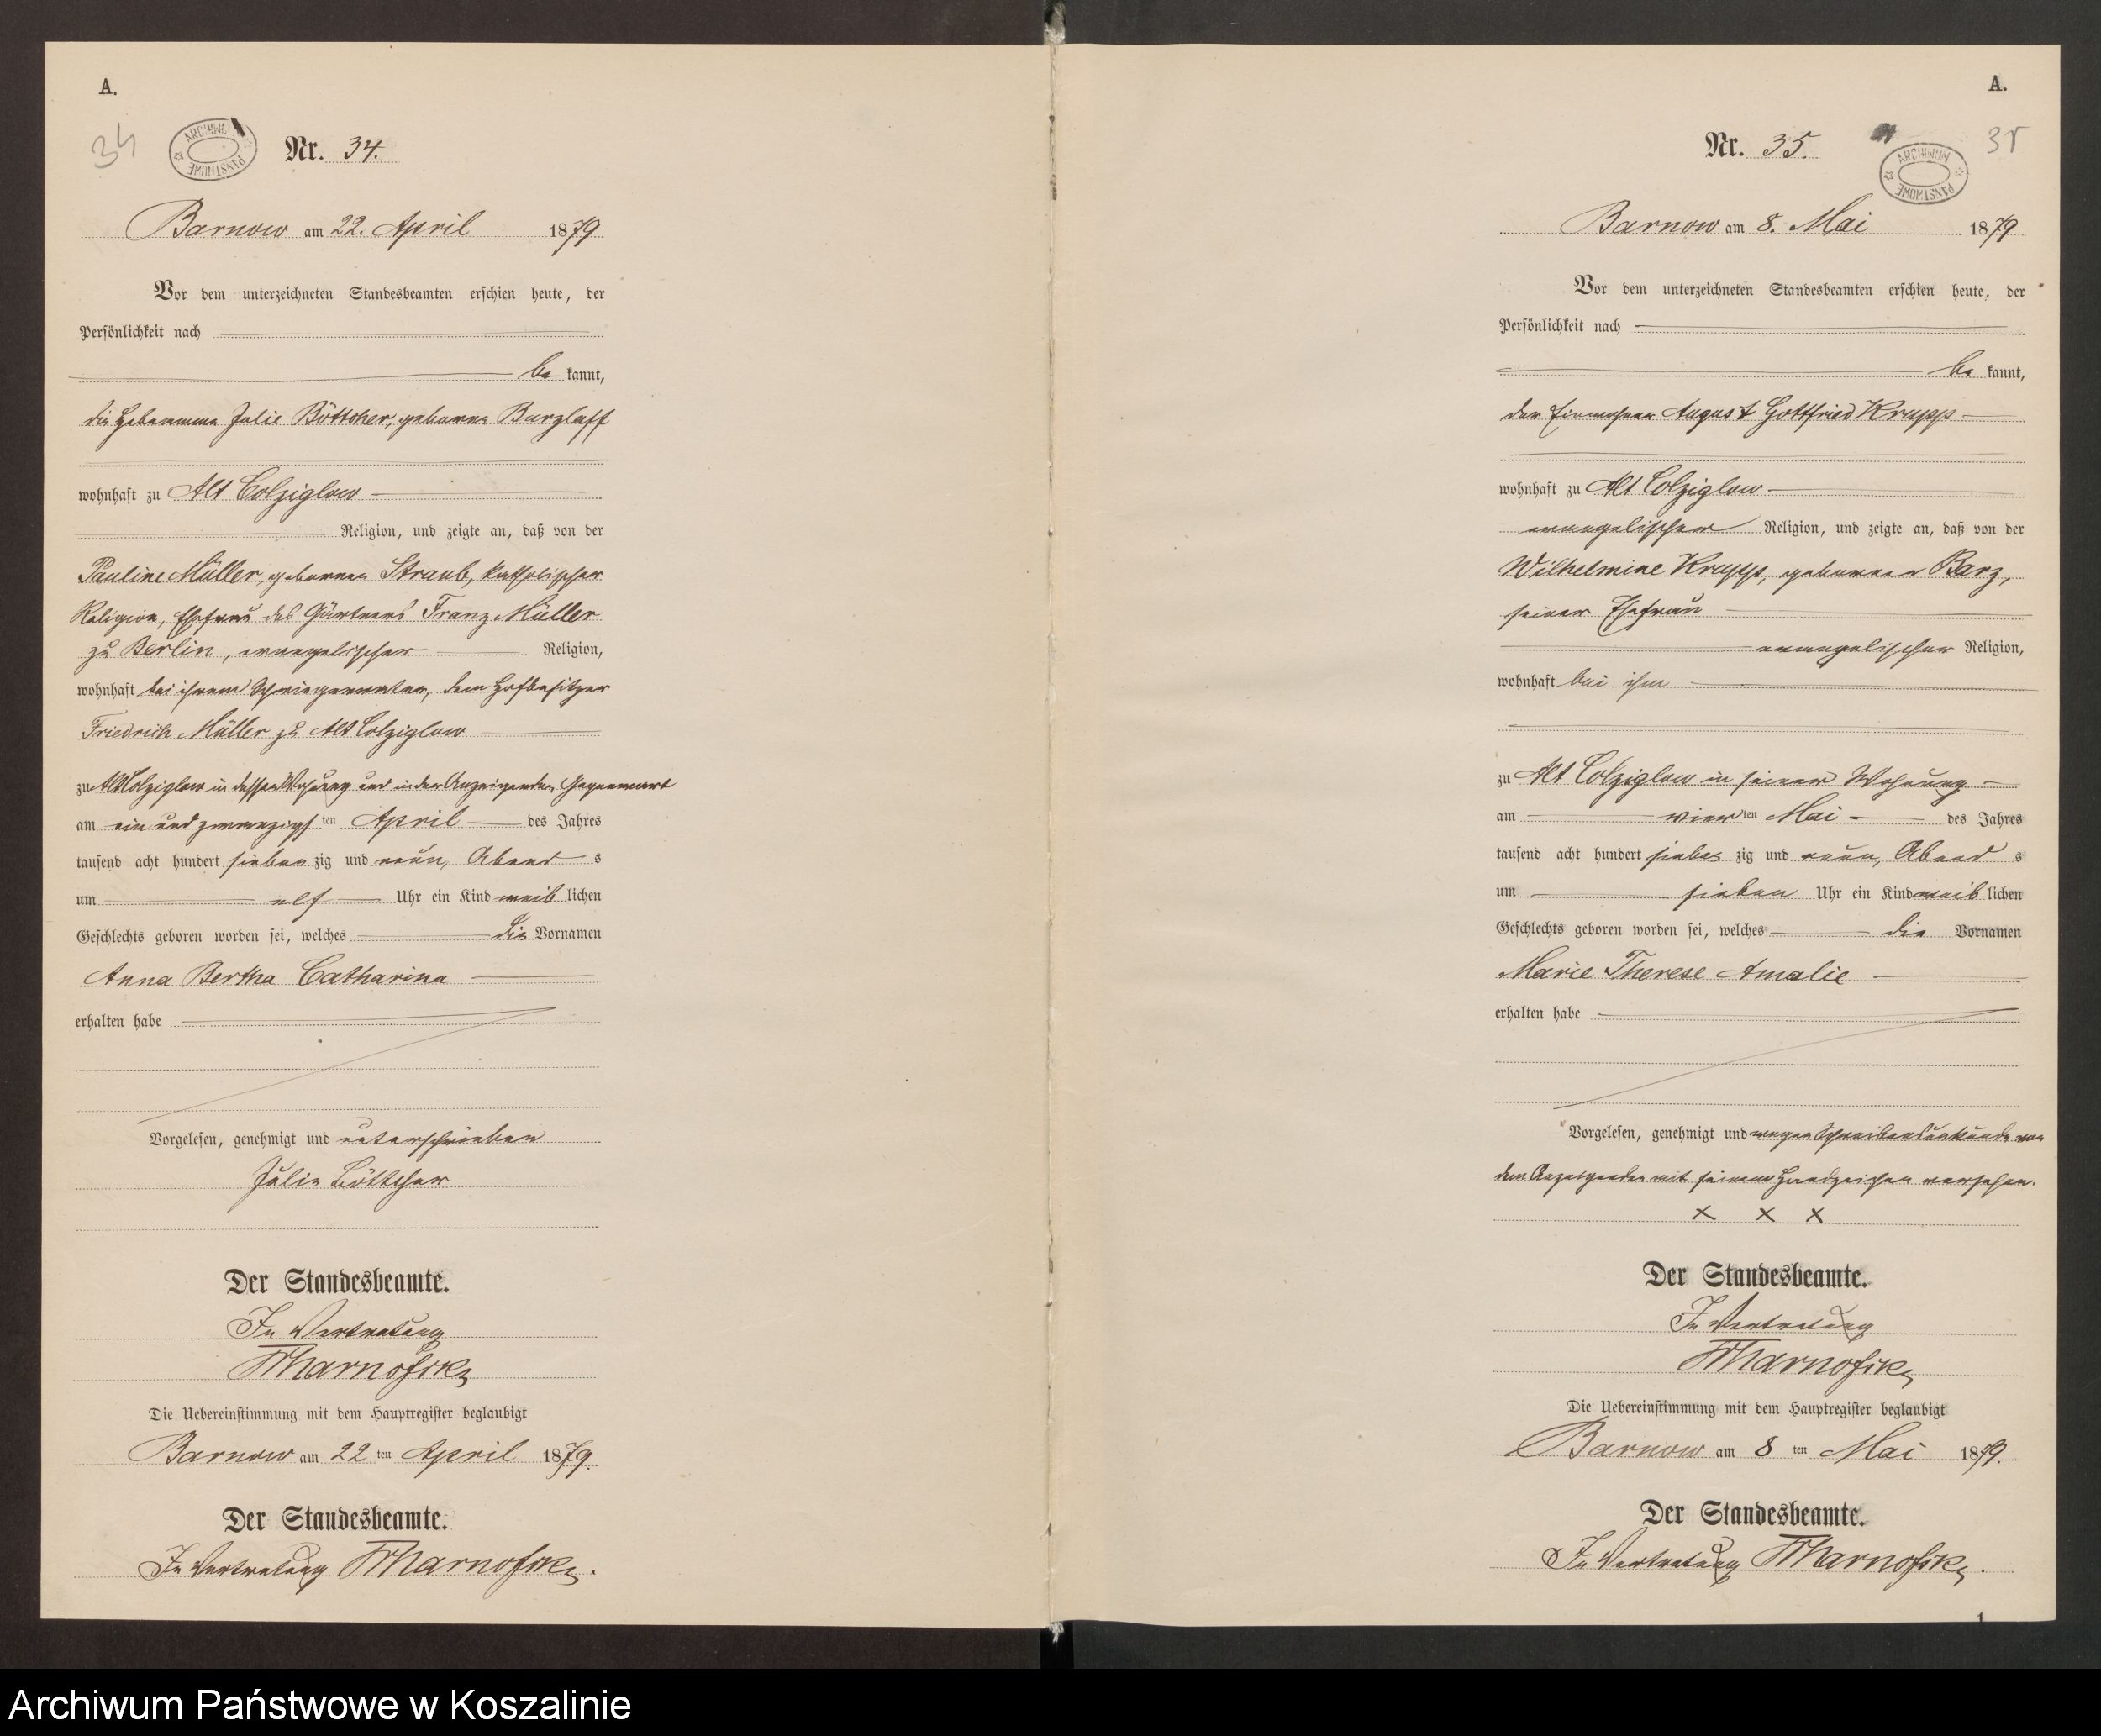 A.
34
ARCHIWUM PAŃSTWOWE
Nr. 34.
Barnow am 22. April 1879
Vor dem unterzeichneten Standesbeamten erschien heute, der
Persönlichkeit nach
be kannt,
die Hebamme Julie Böttcher, geborene Burzlaff
wohnhaft zu Alt Colziglow
Religion, und zeigte an, daß von der
Pauline Müller, geborenen Straub, katholischer
Religion, Ehefrau des Gärtners Franz Müller
zu Berlin, evangelischer Religion,
wohnhaft bei ihrem Schwiegervater, dem Hofbesitzer
Friedrich Müller zu Alt Colziglow
zu Alt Colziglow in dessen Wohnung und in der Anzeigenden Gegenwart
am ein und zwanzigsten April des Jahres
tausend acht hundert sieben zig und neun, Abend s
um elf Uhr ein Kind weib lichen
Geschlechts geboren worden sei, welches die Vornamen
Anna Bertha Catharina
erhalten habe
Vorgelesen, genehmigt und unterschrieben
Julie Böttcher
Der Standesbeamte.
In Vertretung
Die Uebereinstimmung mit dem Hauptregister beglaubigt
Barnow am 22 ten April 1879.
Der Standesbeamte.
In Vertretung
A.
35
ARCHIWUM PAŃSTWOWE
Nr. 35.
Barnow am 8. Mai 1879
Vor dem unterzeichneten Standesbeamten erschien heute, der
Persönlichkeit nach
be kannt,
der Einwohner August Gottfried Krupp
wohnhaft zu Alt Colziglow
evangelischer Religion, und zeigte an, daß von der
Wilhelmine Krupp, geborenen Barz,
seiner Ehefrau
evangelischer Religion,
wohnhaft bei ihm
zu Alt Colziglow in seiner Wohnung
am vier ten Mai des Jahres
tausend acht hundert sieben zig und neun, Abend s
um sieben Uhr ein Kind weib lichen
Geschlechts geboren worden sei, welches die Vornamen
Marie Therese Amalie
erhalten habe
Vorgelesen, genehmigt und wegen Schreibensunkunde von
dem Anzeigenden mit seinem Handzeichen versehen.
x x x
Der Standesbeamte.
In Vertretung
Die Uebereinstimmung mit dem Hauptregister beglaubigt
Barnow am 8 ten Mai 1879.
Der Standesbeamte.
In Vertretung
1
Archiwum Państwowe w Koszalinie